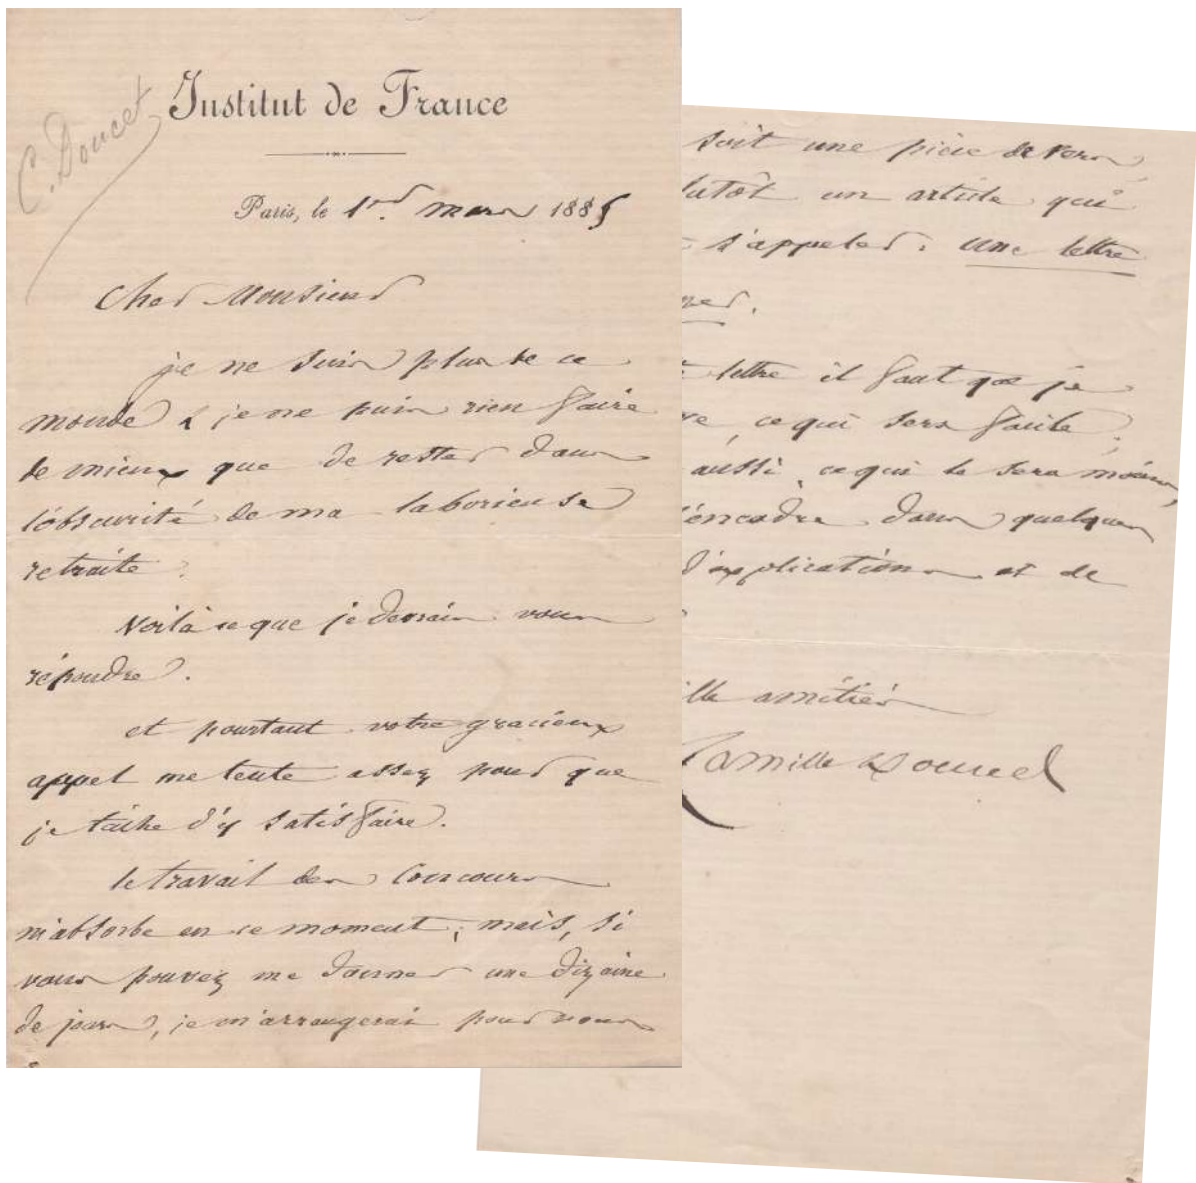 C. Doucet
Institut de France
Paris, le 1er mars 1885
Cher Monsieur
je ne suis plus de ce
monde & je ne puis rien faire
de mieux que de rester dans
l'obscurité de ma laborieuse
retraite.
Voilà ce que je devrais vous
répondre.
et pourtant votre gracieux
appel me tente assez pour que
je tâche d'y satisfaire.
le travail des Concours
m'absorbe en ce moment ; mais, si
vous pouvez me donner une dizaine
de jours, je m'arrangerai pour vous
soit une pièce de vers,
lutôt un article qui
s'appeler : une lettre
ner.
lettre il faut que je
ve, ce qui sera facile ;
aussi, ce qui le sera moins,
l'encadre dans quelques
d'explications et de
ille amitiés
Camille Doucet